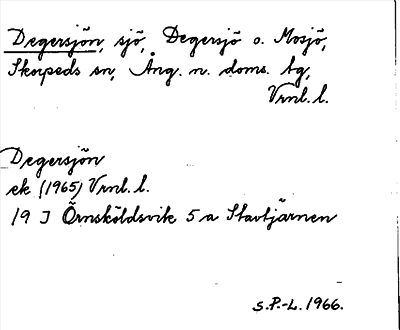 Degersjön, sjö, Degersjö o. Mosjö,
Skorpeds sn, Ång. n. doms. tg,
Vrnl. l.
Degersjön
ek (1965) Vrnl. l.
19 J Örnsköldsvik 5 a Stavtjärnen
S.P.-L. 1966.